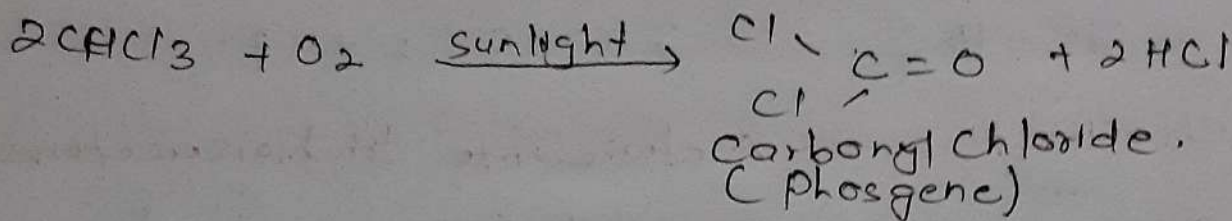 2CHCl3 + O2 sunlight → Cl Cl C = O + 2HCl
Carbonyl Chloride.
(Phosgene)